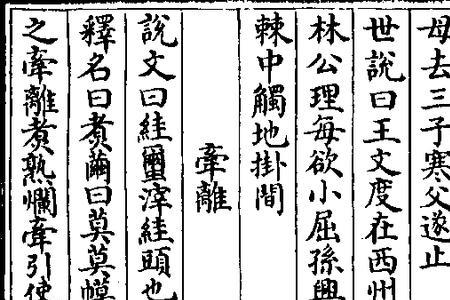 母去三子寒父遂止
世說曰王文度在西州
林公理每欲小屈孫興
棘中觸地掛間
牽離
說文曰絓璽滓絓頭也
釋名曰煮繭曰莫莫幙
之牽離煮熟爛牽引使